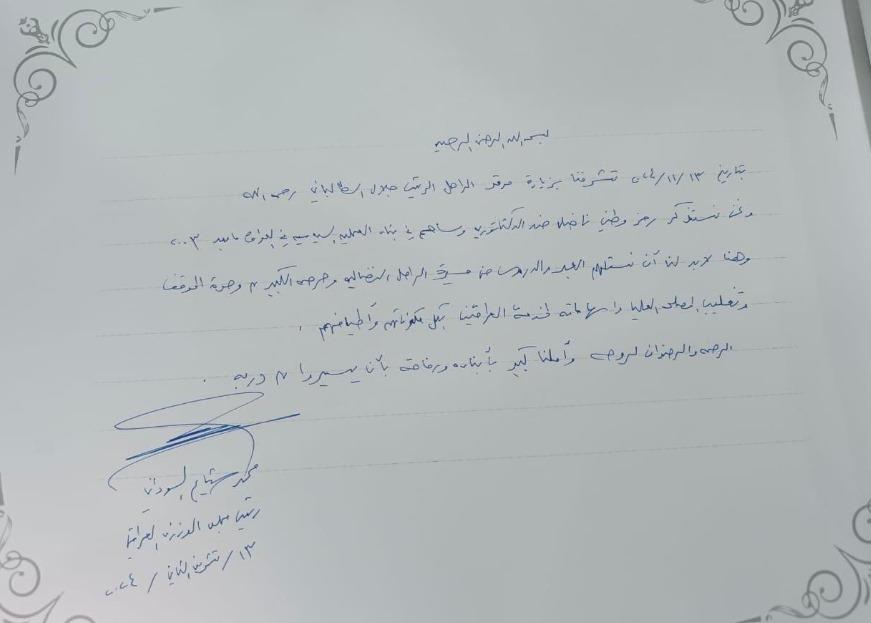 بسم الله الرحمن الرحيم
بتاريخ ١٣/١١/٢٠٢٤ تشرفنا بزيارة مرقد الراحل الرئيس جلال الطالباني رحمه الله
ونحن نستذكر رمز وطني ناضل ضد الدكتاتورية وساهم في بناء العملية السياسية في العراق مابعد ٢٠٠٣
وهنا لابد لنا أن نستلهم العبر والدروس من مسيرة الراحل النضالية وحرصه الكبير على وحدة الموقف
وتغليب المصلحة العليا واسهاماته لخدمة العراقيين بكل مكوناتهم وأطيافهم .
الرحمة والرضوان لروحه وأملنا كبير بأبناءه ورفاقه بأن يسيروا على دربه .
محمد شياع السوداني
رئيس مجلس الوزراء العراقي
١٣/تشرين الثاني/٢٠٢٤